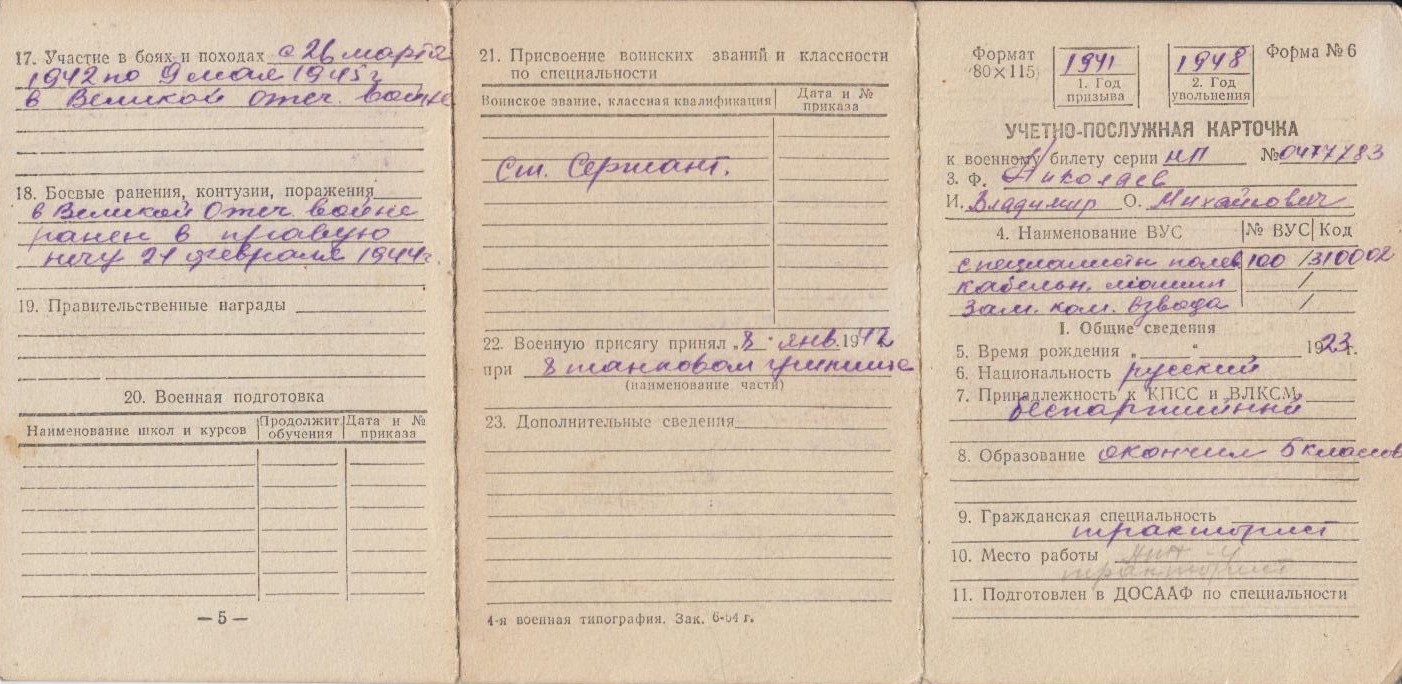 17. Участие в боях и походах с 26 марта
1942 по 9 мая 1945 г
в Великой Отеч. войне
18. Боевые ранения, контузии, поражения
в Великой Отеч. войне
ранен в правую
ногу 21 февраля 1944 г.
19. Правительственные награды
20. Военная подготовка
Наименование школ и курсов
Продолжит. обучения
Дата и № приказа
— 5 —
21. Присвоение воинских званий и классности
по специальности
Воинское звание, классная квалификация
Дата и № приказа
Ст. Сержант.
22. Военную присягу принял „8" янв. 1942
при 8 танковом училище
(наименование части)
23. Дополнительные сведения
4-я военная типография. Зак. 6-64 г.
Формат
(80×115)
1941
1. Год
призыва
1948
2. Год
увольнения
Форма № 6
УЧЕТНО-ПОСЛУЖНАЯ КАРТОЧКА
к военному билету серии НП № 0477783
3. Ф. Николаев
И. Владимир О. Михайлович
4. Наименование ВУС № ВУС Код
специалисты полев 100 /310002
кабельн. машин /
Зам. ком. взвода /
I. Общие сведения
5. Время рождения „ “ 1923 г.
6. Национальность русский
7. Принадлежность к КПСС и ВЛКСМ
беспартийный
8. Образование окончил 5 классов
9. Гражданская специальность
тракторист
10. Место работы
тракторист
11. Подготовлен в ДОСААФ по специальности